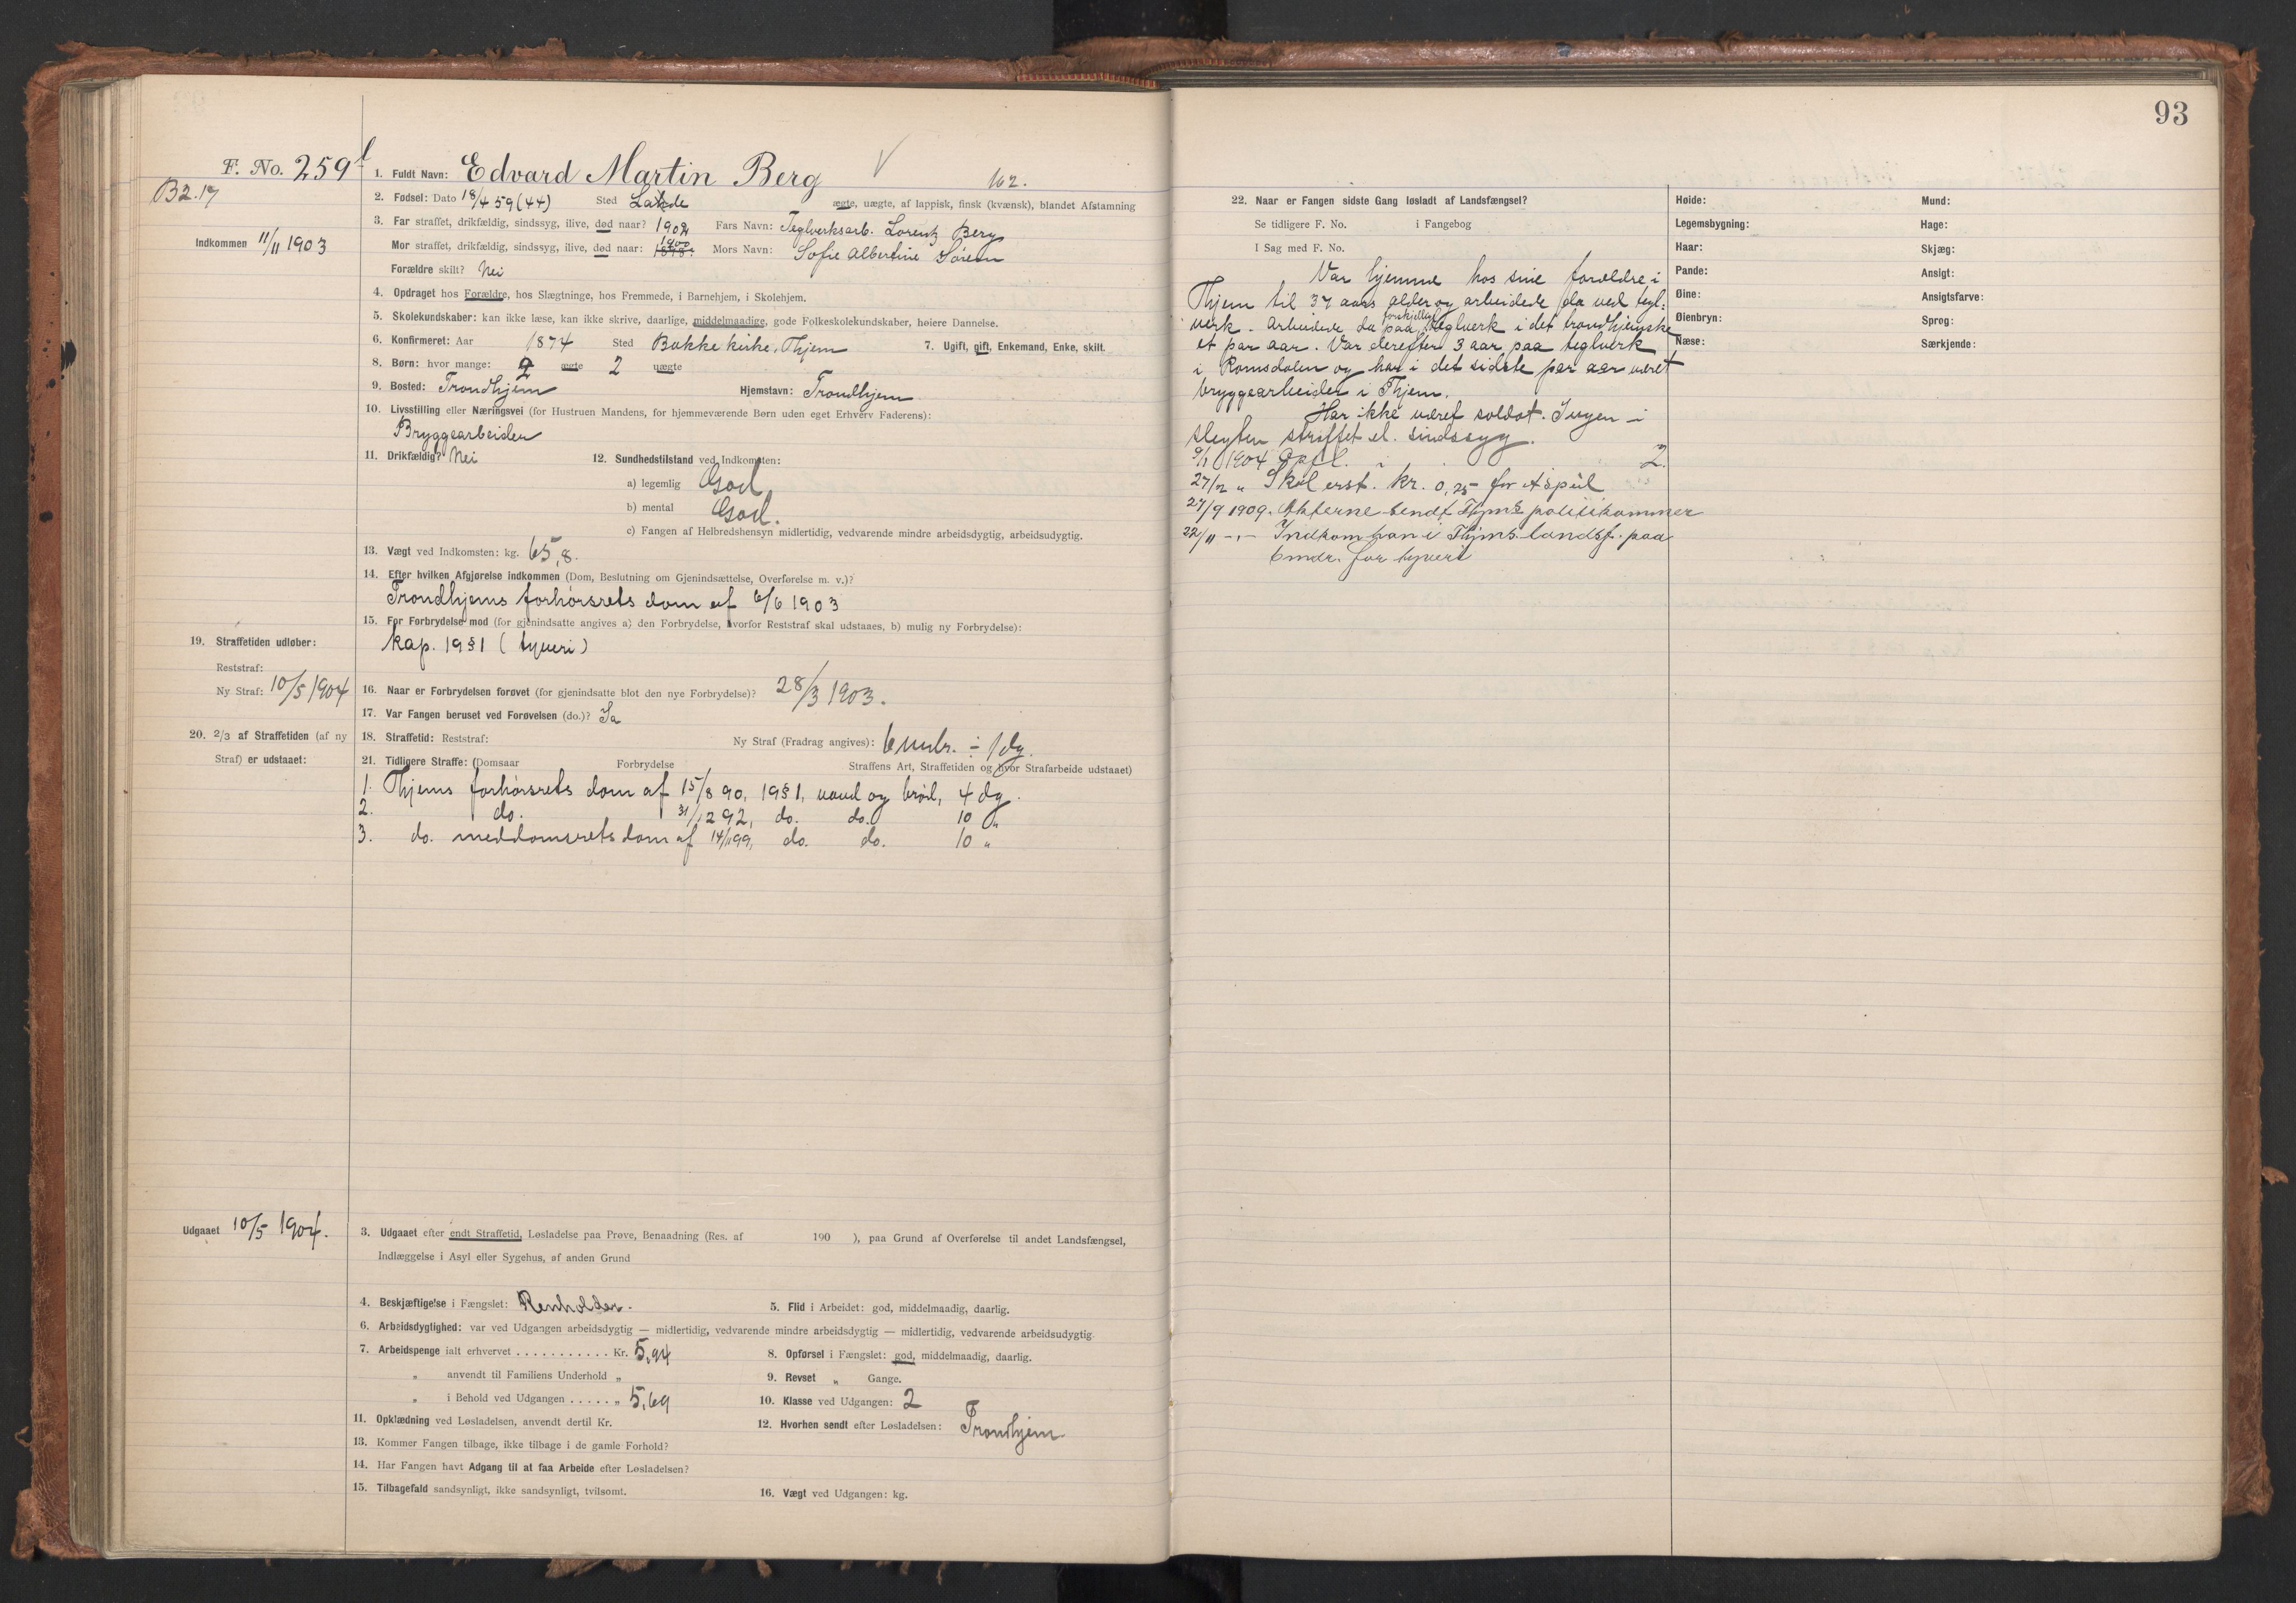 93
F. No. 259 f
B2.17
Indkommen 11/11 1903
1. Fuldt Navn: Edvard Martin Berg
162.
2. Fødsel: Dato 18/4 59 (44) Sted Lade ægte, uægte, af lappisk, finsk (kvænsk), blandet Afstamning
3. Far straffet, drikfældig, sindssyg, ilive, død naar? 1902 Fars Navn: Teglverksarb. Lorentz Berg
Mor straffet, drikfældig, sindssyg, ilive, død naar: 1900 1898. Mors Navn: Sofie Albertine
Forældre skilt? Nei
4. Opdraget hos Forældre, hos Slægtninge, hos Fremmede, i Barnehjem, i Skolehjem.
5. Skolekundskaber: kan ikke læse, kan ikke skrive, daarlige, middelmaadige, gode Folkeskolekundskaber, høiere Dannelse.
6. Konfirmeret: Aar 1874 Sted Bakke kirke, Thjem 7. Ugift, gift, Enkemand, Enke, skilt.
8. Børn: hvor mange: ægte 2 uægte
9. Bosted: Trondhjem Hjemstavn: Trondhjem
10. Livsstilling eller Næringsvei (for Hustruen Mandens, for hjemmeværende Børn uden eget Erhverv Faderens):
Bryggearbeider
11. Drikfældig? Nei 12. Sundhedstilstand ved Indkomsten:
a) legemlig God
b) mental God.
c) Fangen af Helbredshensyn midlertidig, vedvarende mindre arbeidsdygtig, arbeidsudygtig.
13. Vægt ved Indkomsten: kg. 65,8.
14. Efter hvilken Afgjørelse indkommen (Dom, Beslutning om Gjenindsættelse, Overførelse m. v.)?
Trondhjems forhørsrets dom af 6/6 1903
15. For Forbrydelse mod (for gjenindsatte angives a) den Forbrydelse, hvorfor Reststraf skal udstaaes, b) mulig ny Forbrydelse):
kap. 19 § 1 (tyveri)
19. Straffetiden udløber:
Reststraf:
Ny Straf: 10/5 1904
16. Naar er Forbrydelsen forøvet (for gjenindsatte blot den nye Forbrydelse)? 28/3 1903.
17. Var Fangen beruset ved Forøvelsen (do.)? Ja
20. 2/3 af Straffetiden (af ny
Straf) er udstaaet:
18. Straffetid: Reststraf: Ny Straf (Fradrag angives): 6 mdr. ÷ 1 dg.
21. Tidligere Straffe: (Domsaar Forbrydelse Straffens Art, Straffetiden og hvor Strafarbeide udstaaet)
1. Thjems forhørsrets dom af 15/8 90, 19 § 1, vand og brød, 4 dg.
2. do. 31/12 92, do. do. 10 "
3. do. meddomsrets dom af 14/11 99, do. do. 10 "
Udgaaet 10/5 1904.
3. Udgaaet efter endt Straffetid, Løsladelse paa Prøve, Benaadning (Res. af 190 ), paa Grund af Overførelse til andet Landsfængsel,
Indlæggelse i Asyl eller Sygehus, af anden Grund
4. Beskjæftigelse i Fængslet: Renholder. 5. Flid i Arbeidet: god, middelmaadig, daarlig.
6. Arbeidsdygtighed: var ved Udgangen arbeidsdygtig — midlertidig, vedvarende mindre arbeidsdygtig — midlertidig, vedvarende arbeidsudygtig.
7. Arbeidspenge ialt erhvervet . . . . . . . . . . . Kr. 5,94 8. Opførsel i Fængslet: god, middelmaadig, daarlig.
" anvendt til Familiens Underhold " 9. Revset " Gange.
" i Behold ved Udgangen . . . . . " 5,69 10. Klasse ved Udgangen: 2
11. Opklædning ved Løsladelsen, anvendt dertil Kr. 12. Hvorhen sendt efter Løsladelsen: Trondhjem
13. Kommer Fangen tilbage, ikke tilbage i de gamle Forhold?
14. Har Fangen havt Adgang til at faa Arbeide efter Løsladelsen?
15. Tilbagefald sandsynligt, ikke sandsynligt, tvilsomt. 16. Vægt ved Udgangen: kg.
22. Naar er Fangen sidste Gang løsladt af Landsfængsel?
Se tidligere F. No. i Fangebog
I Sag med F. No.
Var hjemme hos sine forældre i
Thjem til 37 aars alder og arbeidede da ved tegl-
verk. Arbeidede da paa forskjellige teglverk i det trondhjemske
et par aar. Var derefter 3 aar paa teglverk
i Romsdalen og har i det sidste par aar været
bryggearbeider i Thjem.
Har ikke været soldat. Ingen i
slegten straffet el. sindssyg.
9/1 1904 Opfl. i 2.
27/2 " Skal erst. kr. 0,25 for
27/9 1909. Akterne sendt Thjms politikammer
22/11 -"- Indkom han i Thjms landsf. paa
6 mdr. for tyveri
Høide: Mund:
Legemsbygning: Hage:
Haar: Skjæg:
Pande: Ansigt:
Øine: Ansigtsfarve:
Øienbryn: Sprog:
Næse: Særkjende: